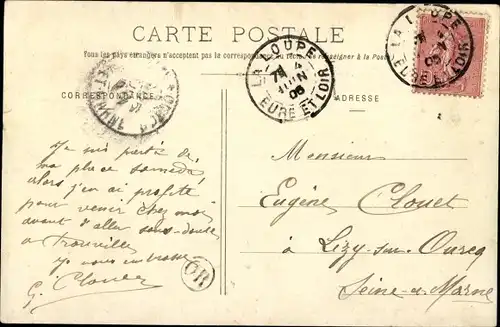 CARTE POSTALE
Tous les pays étrangers n'acceptent pas la correspondance au recto. (Se renseigner à la Poste)
CORRESPONDANCE
ADRESSE
LA LOUPE
4
JUIN
EURE ET LOIR
LA LOUPE
EURE ET LOIR
Je suis parti de
ma place samedi
alors j'en ai profité
pour venir chez moi
avant d'aller sans-doute
à Trouville
Je vous embrasse
G. Clouet
OR
Monsieur
Eugène Clouet
à Lizy-sur-Ourcq
Seine-et-Marne